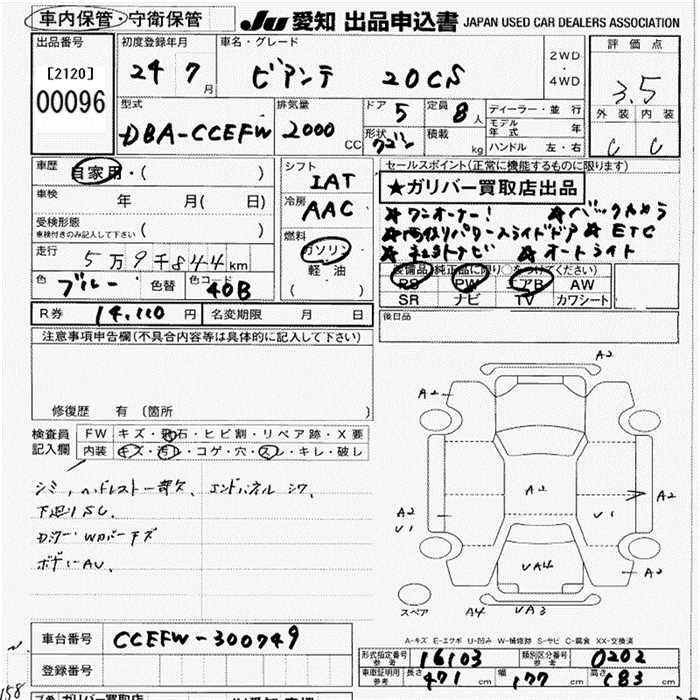 車内保管・守衛保管
JU 愛知 出品申込書 JAPAN USED CAR DEALERS ASSOCIATION
出品番号
[2120]
00096
初度登録年月
24 7 月
車名・グレード
ビアンテ 20CS
2WD
・
4WD
評価点
3.5
外装 内装
C C
型式
DBA-CCEFW
排気量
2000 CC
ドア
5
形状
ワゴン
定員
8 人
積載
kg
ディーラー・並行
モデル年式 年
ハンドル 左・右
車歴
自家用・( )
車検 年 月( 日)
受検形態
車検付きのみ記入して下さい ( )
走行
5万9千844 km
色 ブルー 色替 色コード 40B
シフト
IAT
冷房
AAC
燃料
ガソリン
軽油
( )
R券 14,110 円 名変期限 月 日
セールスポイント(正常に機能するものに限ります)
★ガリバー買取店出品
★ワンオーナー! ★バックカメラ
★両側パワースライドドア ★ETC
★純正ナビ ★オートライト
装備品(純正品に限り○をつけてください)
PS PW エアB AW
SR ナビ TV カワシート
後日品
注意事項申告欄(不具合内容等は具体的に記入して下さい)
修復歴 有 (箇所 )
検査員
記入欄
FW キズ・飛石・ヒビ割・リペア跡・X要
内装 キズ・汚れ・コゲ・穴・スレ・キレ・破し
シミ、ヘッドレスト一部欠、エンドパネルシワ、
下廻りSC.
ボディーAU、
A2
A2
A2
A2
U1
U1
A2
UA4
A2
スペア
A4 UA3
A-キズ E-エクボ U-凹み W-補修跡 S-サビ C-腐食 XX-交換済
車台番号 CCEFW-300749
登録番号
形式指定番号 参考 16103
類別区分番号 参考 0202
車車証明用 参考 長さ 471 cm 幅 177 cm 高さ 183 cm
158
ガリバー買取店